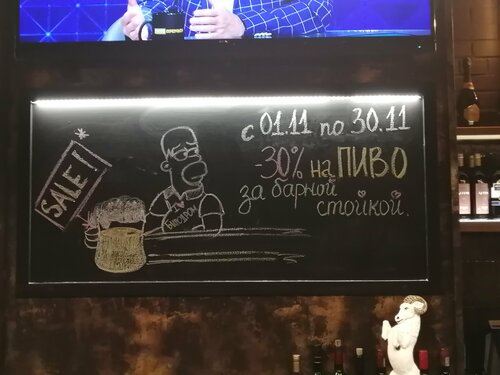 SALE!
с 01.11 по 30.11
-30% на ПИВО
за барной
стойкой.